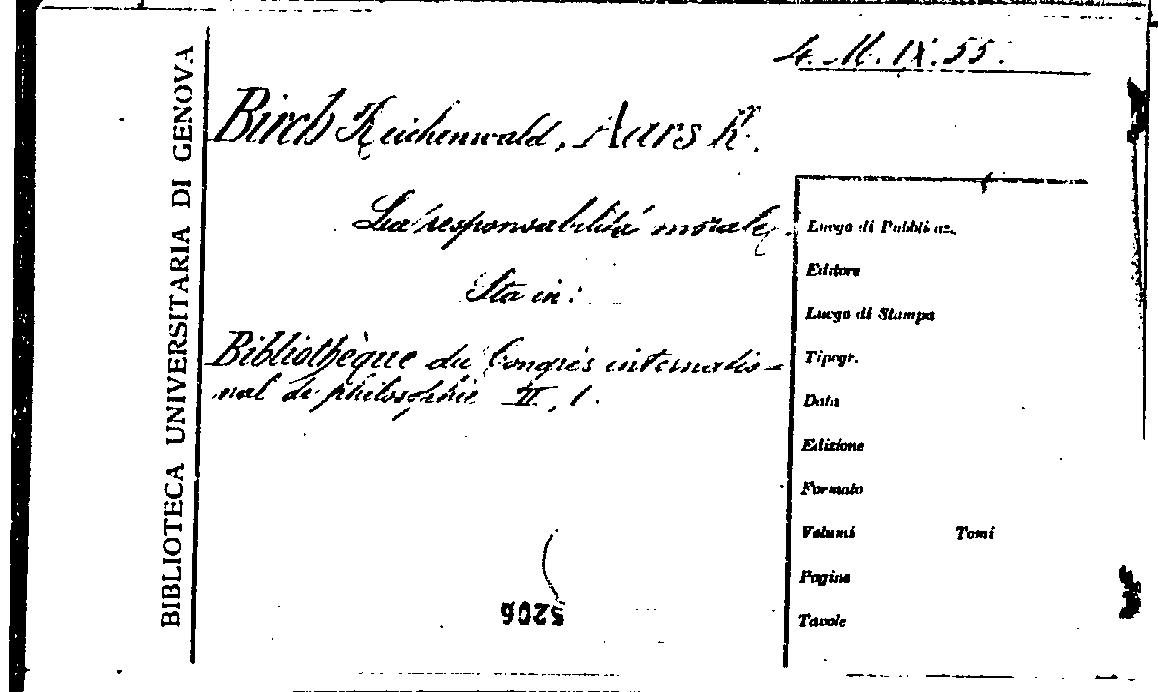 4. M. IX. 55.
BIBLIOTECA UNIVERSITARIA DI GENOVA
Birch Reichenwald, Aars Kr.
La responsabilité morale.
Sta in:
Bibliothèque du Congrès internatio-
nal de philosophie II, 1.
Luogo di Pubblicaz.
Editore
Luogo di Stampa
Tipogr.
Data
Edizione
Formato
Volumi Tomi
Pagine
Tavole